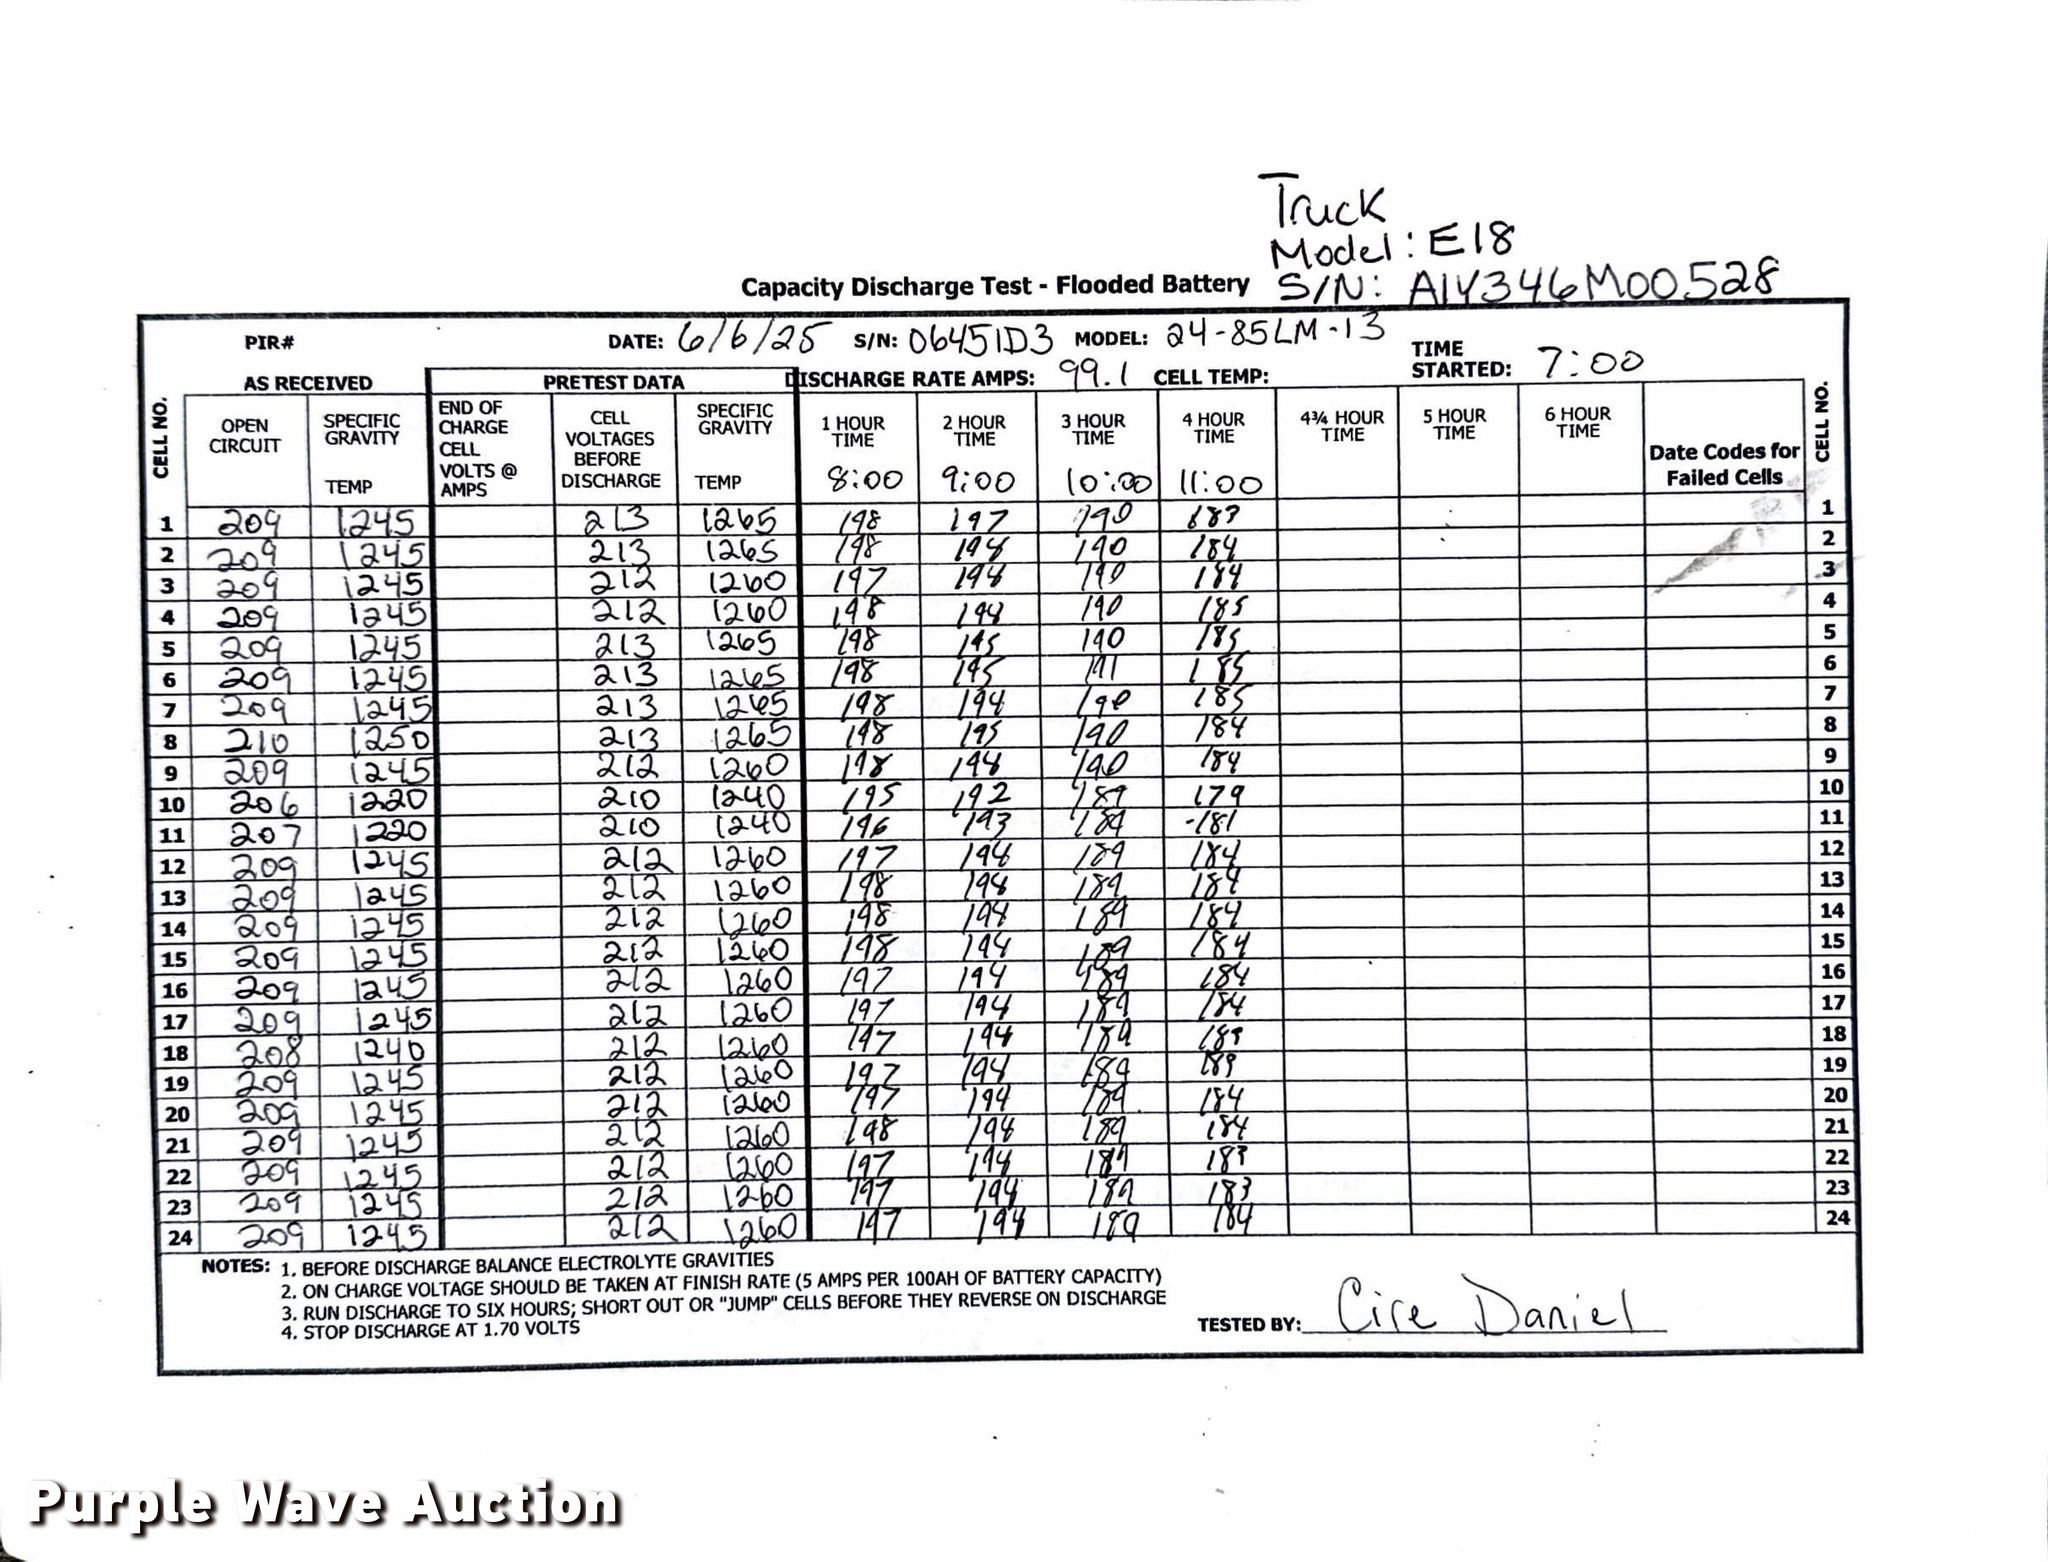 Truck
Model: E18
Capacity Discharge Test - Flooded Battery S/N: A1Y346M00528
PIR# DATE: 6/6/25 S/N: 06451D3 MODEL: 24-85LM-13 TIME STARTED: 7:00
AS RECEIVED PRETEST DATA DISCHARGE RATE AMPS: 99.1 CELL TEMP:
CELL NO. OPEN CIRCUIT SPECIFIC GRAVITY TEMP END OF CHARGE CELL VOLTS @ AMPS CELL VOLTAGES BEFORE DISCHARGE SPECIFIC GRAVITY TEMP 1 HOUR TIME 8:00 2 HOUR TIME 9:00 3 HOUR TIME 10:00 4 HOUR TIME 11:00 4¾ HOUR TIME 5 HOUR TIME 6 HOUR TIME Date Codes for Failed Cells CELL NO.
1 209 1245 213 1265 198 197 190 183 1
2 209 1245 213 1265 198 194 190 184 2
3 209 1245 212 1260 197 194 190 184 3
4 209 1245 212 1260 198 194 190 185 4
5 209 1245 213 1265 198 195 190 185 5
6 209 1245 213 1265 198 195 191 185 6
7 209 1245 213 1265 198 194 190 185 7
8 210 1250 213 1265 198 195 190 184 8
9 209 1245 212 1260 198 194 190 184 9
10 206 1220 210 1240 195 192 189 179 10
11 207 1220 210 1240 196 193 189 -181 11
12 209 1245 212 1260 197 194 189 184 12
13 209 1245 212 1260 198 194 189 184 13
14 209 1245 212 1260 198 194 189 184 14
15 209 1245 212 1260 198 194 189 184 15
16 209 1245 212 1260 197 194 189 184 16
17 209 1245 212 1260 197 194 189 184 17
18 208 1240 212 1260 197 194 189 18
19 209 1245 212 1260 197 194 189 19
20 209 1245 212 1260 197 194 189 184 20
21 209 1245 212 1260 198 194 189 184 21
22 209 1245 212 1260 197 194 189 183 22
23 209 1245 212 1260 197 194 189 183 23
24 209 1245 212 1260 197 194 189 184 24
NOTES: 1. BEFORE DISCHARGE BALANCE ELECTROLYTE GRAVITIES
2. ON CHARGE VOLTAGE SHOULD BE TAKEN AT FINISH RATE (5 AMPS PER 100AH OF BATTERY CAPACITY)
3. RUN DISCHARGE TO SIX HOURS; SHORT OUT OR "JUMP" CELLS BEFORE THEY REVERSE ON DISCHARGE
4. STOP DISCHARGE AT 1.70 VOLTS
TESTED BY: Cire Daniel
Purple Wave Auction